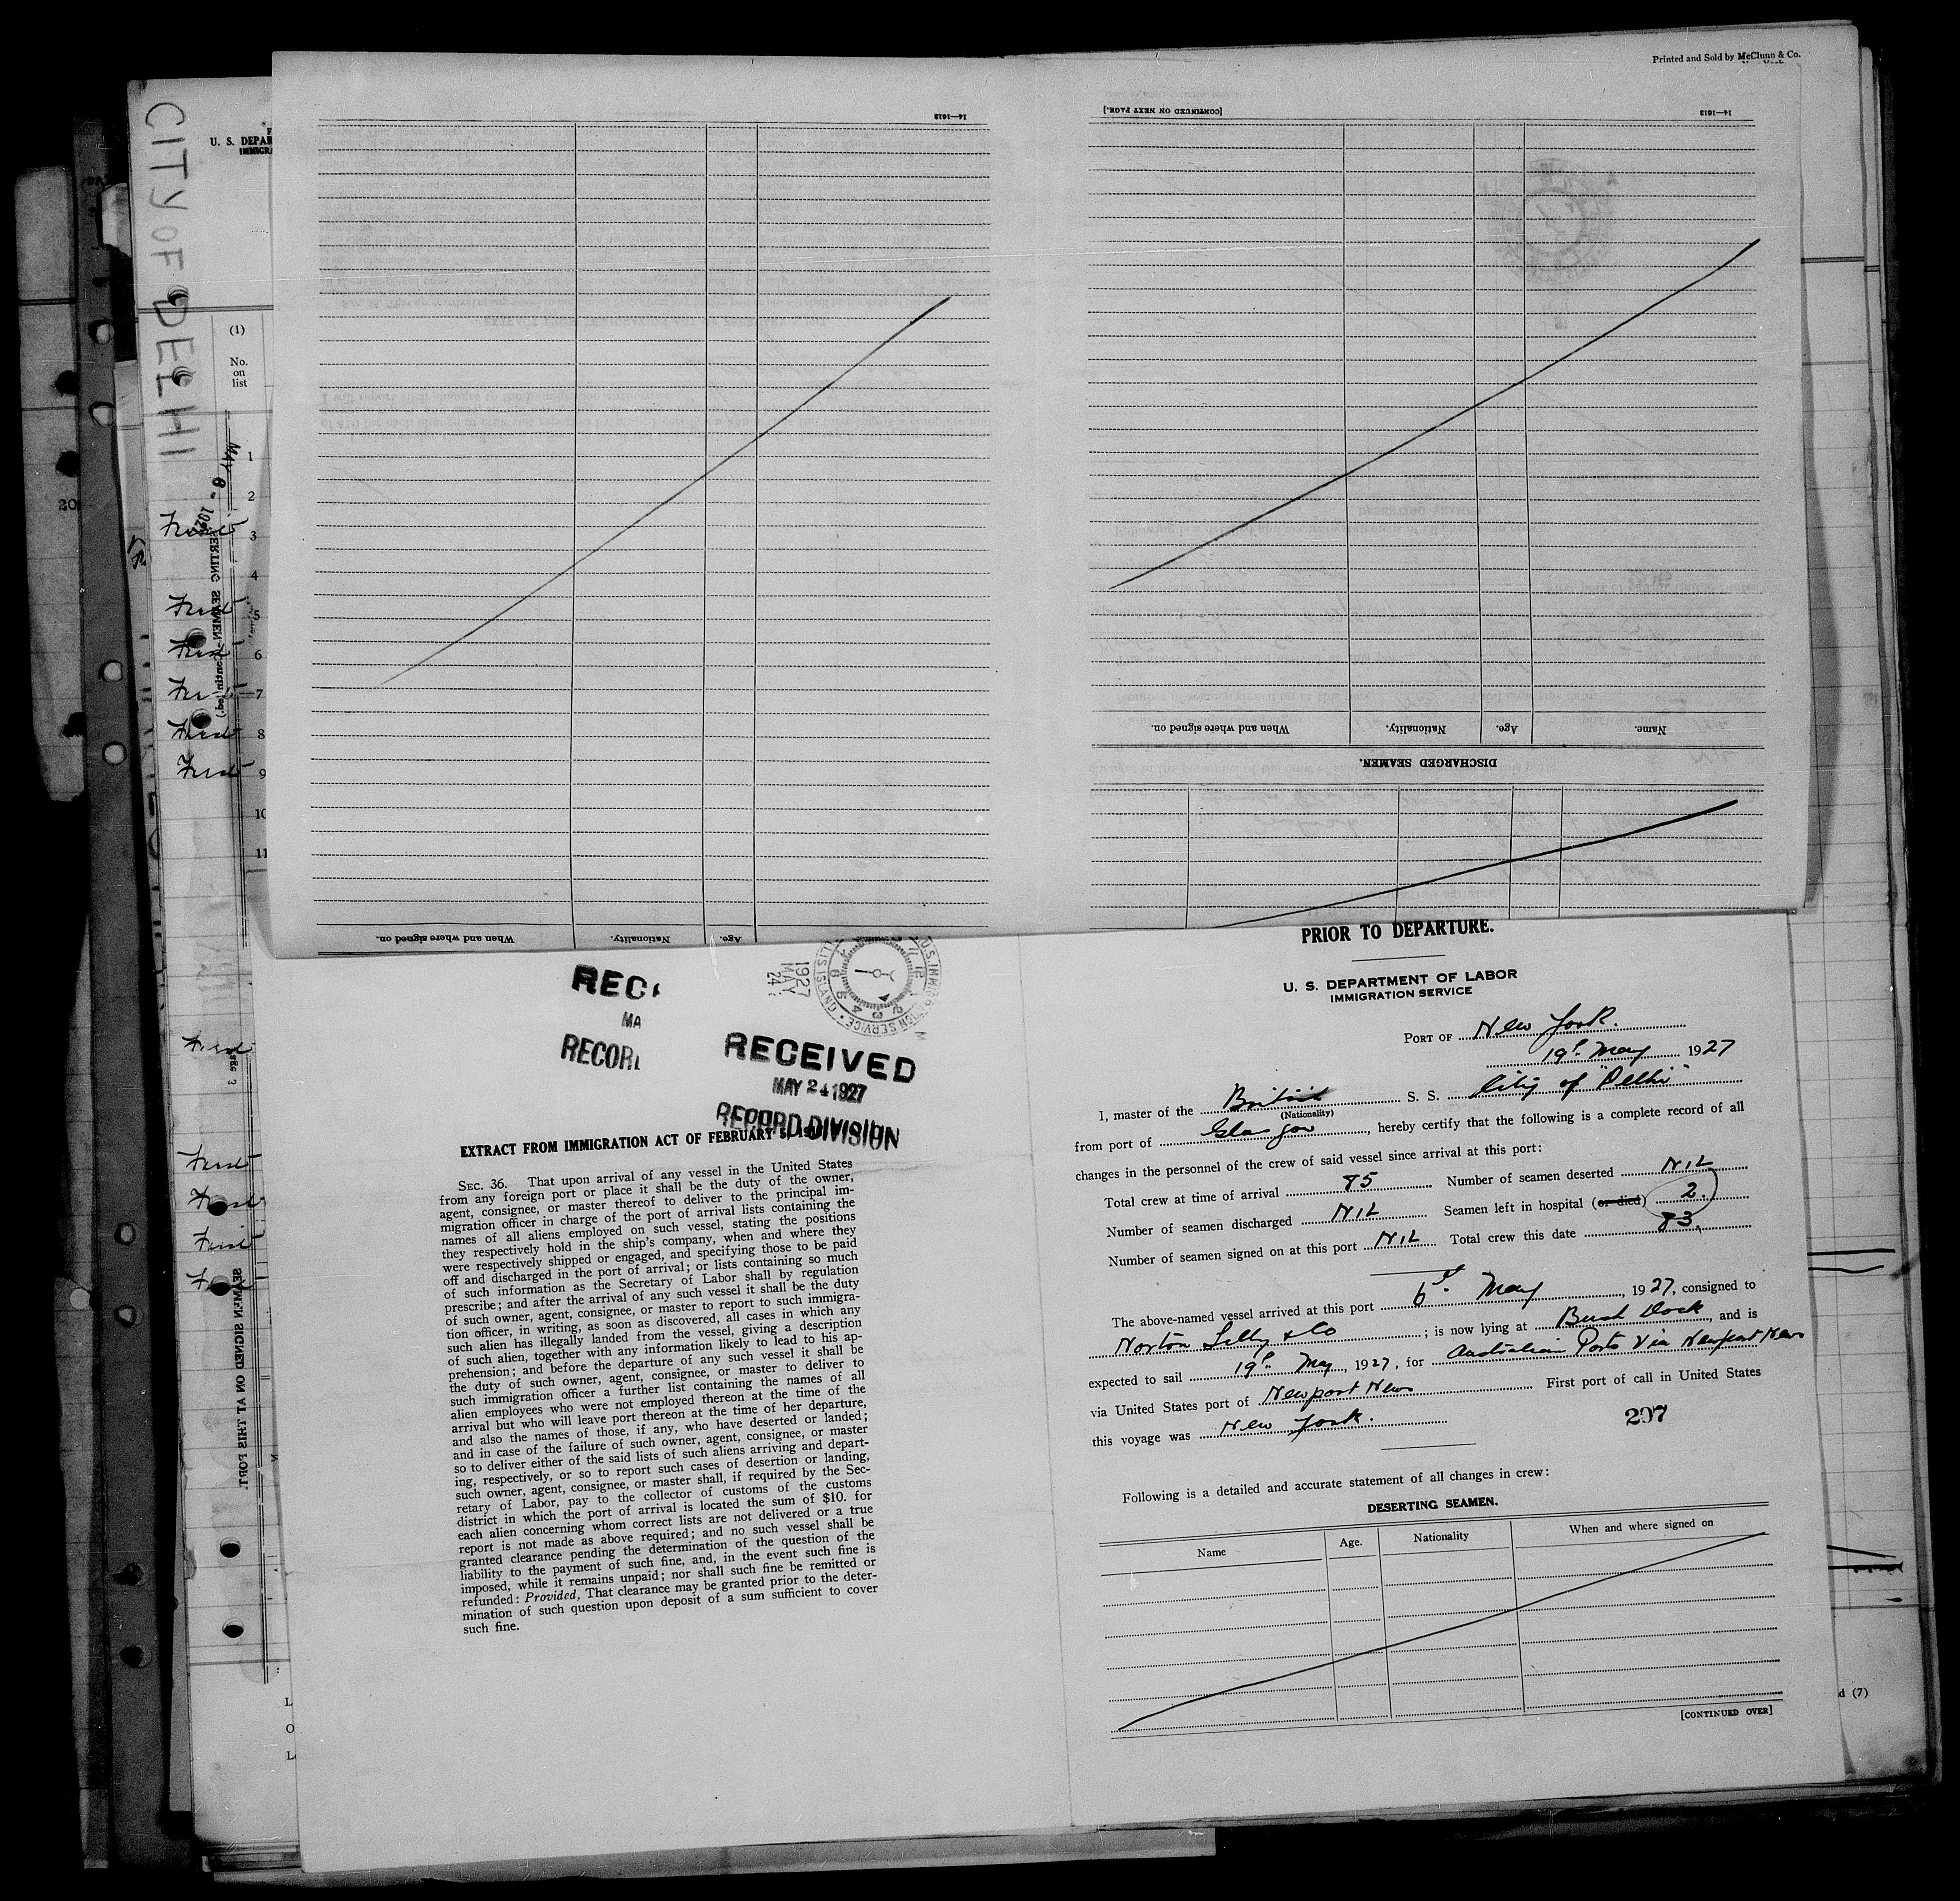 Printed and Sold by McClunn & Co.
14—1613
[CONTINUED ON NEXT PAGE.]
14—1613
CITY OF DELHI
U. S. DEPAR
IMMIGRA
(1)
No.
on
list
MAY 6 - 1927
1
2
3
4
5
6
7
8
9
10
11
20
SEAMEN SIGNED ON AT THIS PORT.
When and where signed on.
Nationality.
Age.
Name.
DISCHARGED SEAMEN.
When and where signed on.
Nationality.
Age.
RECE
MA
RECORD
1927
MAY
24
RECEIVED
MAY 24 1927
RECORD DIVISION
EXTRACT FROM IMMIGRATION ACT OF FEBRUARY 5, 1917
SEC. 36. That upon arrival of any vessel in the United States
from any foreign port or place it shall be the duty of the owner,
agent, consignee, or master thereof to deliver to the principal im-
migration officer in charge of the port of arrival lists containing the
names of all aliens employed on such vessel, stating the positions
they respectively hold in the ship's company, when and where they
were respectively shipped or engaged, and specifying those to be paid
off and discharged in the port of arrival; or lists containing so much
of such information as the Secretary of Labor shall by regulation
prescribe; and after the arrival of any such vessel it shall be the duty
of such owner, agent, consignee, or master to report to such immigra-
tion officer, in writing, as soon as discovered, all cases in which any
such alien has illegally landed from the vessel, giving a description
of such alien, together with any information likely to lead to his ap-
prehension; and before the departure of any such vessel it shall be
the duty of such owner, agent, consignee, or master to deliver to
such immigration officer a further list containing the names of all
alien employees who were not employed thereon at the time of the
arrival but who will leave port thereon at the time of her departure,
and also the names of those, if any, who have deserted or landed;
and in case of the failure of such owner, agent, consignee, or master
so to deliver either of the said lists of such aliens arriving and depart-
ing, respectively, or so to report such cases of desertion or landing,
such owner, agent, consignee, or master shall, if required by the Sec-
retary of Labor, pay to the collector of customs of the customs
district in which the port of arrival is located the sum of $10. for
each alien concerning whom correct lists are not delivered or a true
report is not made as above required; and no such vessel shall be
granted clearance pending the determination of the question of the
liability to the payment of such fine, and, in the event such fine is
imposed, while it remains unpaid; nor shall such fine be remitted or
refunded: Provided, That clearance may be granted prior to the deter-
mination of such question upon deposit of a sum sufficient to cover
such fine.
PRIOR TO DEPARTURE.
U. S. DEPARTMENT OF LABOR
IMMIGRATION SERVICE
PORT OF New York.
19th May 1927
I, master of the British S. S. City of "Delhi"
(Nationality)
from port of Glasgow, hereby certify that the following is a complete record of all
changes in the personnel of the crew of said vessel since arrival at this port:
Total crew at time of arrival 85 Number of seamen deserted NIL
Number of seamen discharged NIL Seamen left in hospital (or died) 2.
Number of seamen signed on at this port NIL Total crew this date 83.
The above-named vessel arrived at this port 6th May, 1927, consigned to
Norton Lilly & Co; is now lying at Bush Dock, and is
expected to sail 19th May, 1927, for Australian Ports Via Newport News
via United States port of Newport News First port of call in United States
this voyage was New York.
207
Following is a detailed and accurate statement of all changes in crew:
DESERTING SEAMEN.
Name Age. Nationality When and where signed on
[CONTINUED OVER]
d (7)